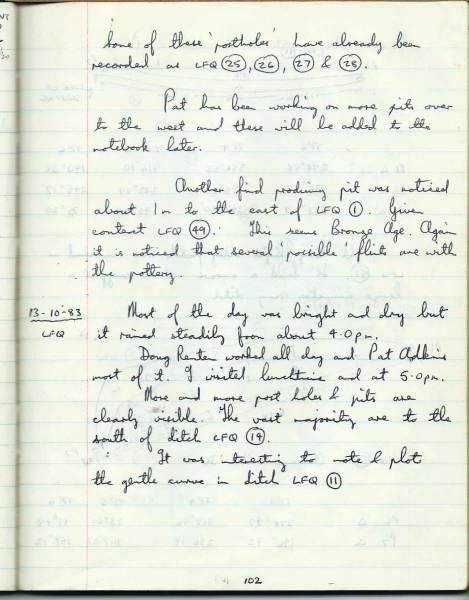 Some of these 'postholes' have already been
recorded as LFQ 25, 26, 27 & 28.
Pat has been working on more pits over
to the west and these will be added to the
notebook later.
Another find producing pit was noticed
about 1m to the east of LFQ 1. Given
context LFQ 49. This seems Bronze Age. Again
it is noticed that several 'possible' flints are with
the pottery.
13-10-83
LFQ
Most of the day was bright and dry but
it rained steadily from about 4.0pm.
Doug Renten worked all day and Pat Adkins
most of it. I visited lunchtime and at 5.0pm.
More and more post holes & pits are
clearly visible. The vast majority are to the
south of ditch LFQ 19.
It was interesting to note & plot
the gentle curve in ditch LFQ 11
102